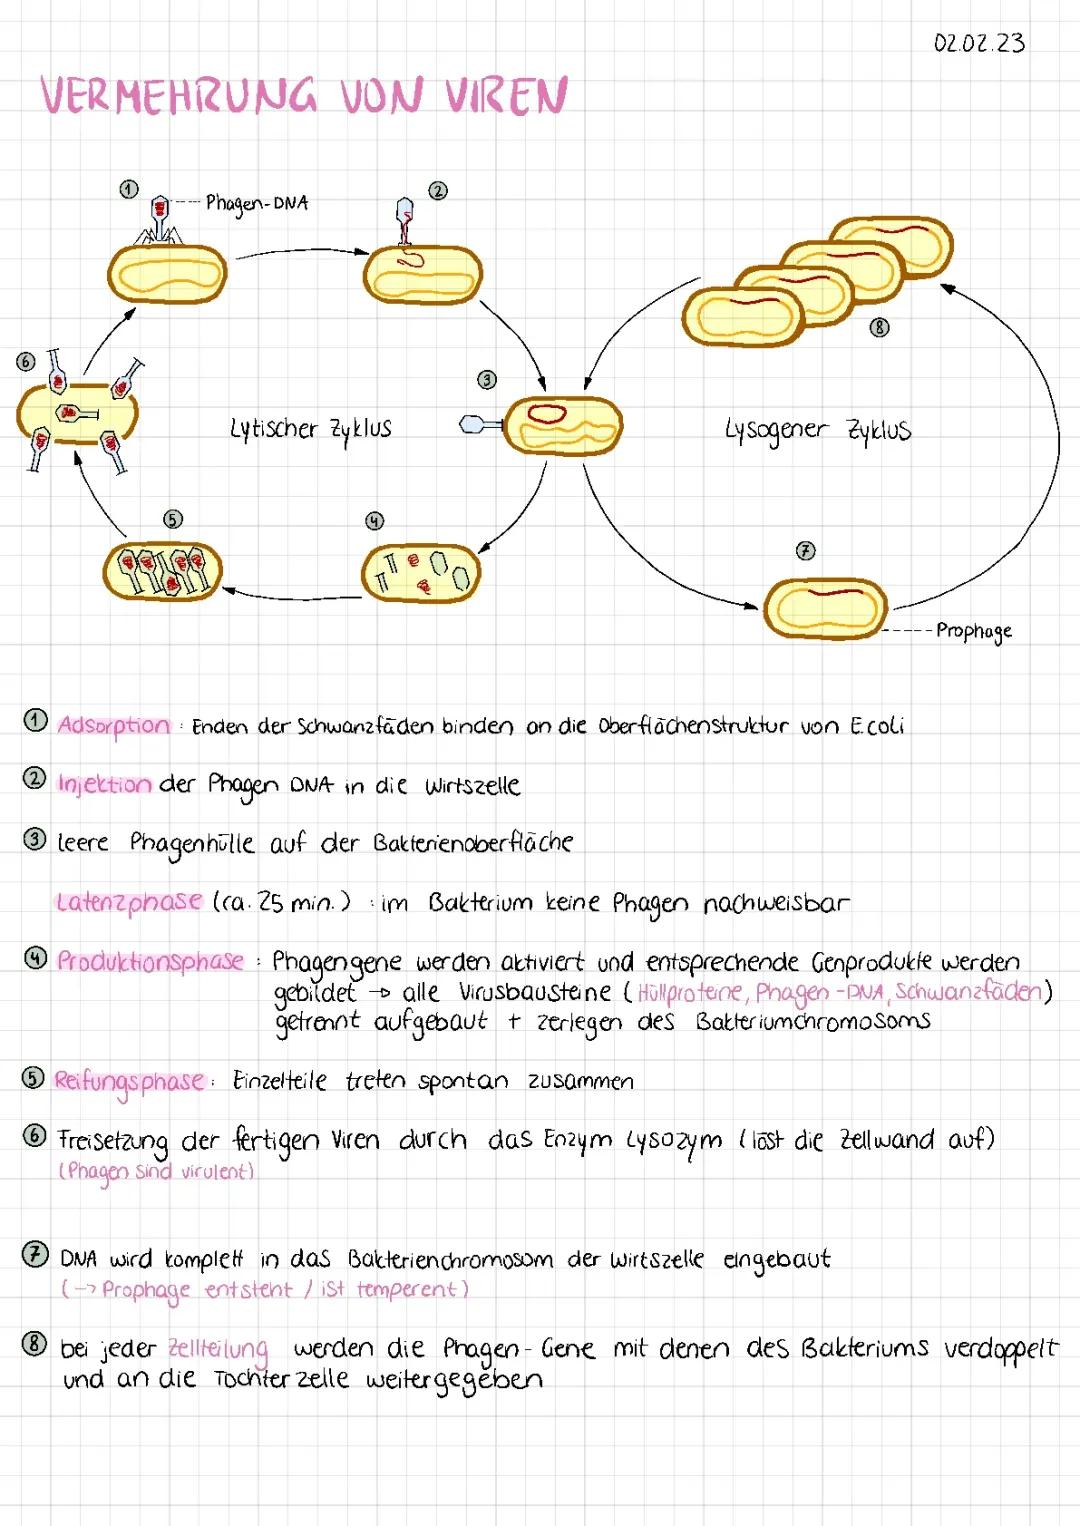 02.02.23
VERMEHRUNG VON VIREN
① Phagen-DNA
②
⑧
⑥
③
Lytischer Zyklus
Lysogener Zyklus
⑤
④
⑦
Prophage
① Adsorption : Enden der Schwanzfäden binden an die Oberflächenstruktur von E.coli
② Injektion der Phagen DNA in die Wirtszelle
③ leere Phagenhülle auf der Bakterienoberfläche
Latenzphase (ca. 25 min.) : im Bakterium keine Phagen nachweisbar
④ Produktionsphase : Phagengene werden aktiviert und entsprechende Genprodukte werden
gebildet → alle Virusbausteine (Hüllproteine, Phagen-DNA, Schwanzfäden)
getrennt aufgebaut + zerlegen des Bakteriumchromosoms
⑤ Reifungsphase : Einzelteile treten spontan zusammen
⑥ Freisetzung der fertigen Viren durch das Enzym Lysozym (löst die Zellwand auf)
(Phagen sind virulent)
⑦ DNA wird komplett in das Bakterienchromosom der Wirtszelle eingebaut
(-> Prophage entsteht / ist temperent)
⑧ bei jeder Zellteilung werden die Phagen-Gene mit denen des Bakteriums verdoppelt
und an die Tochterzelle weitergegeben